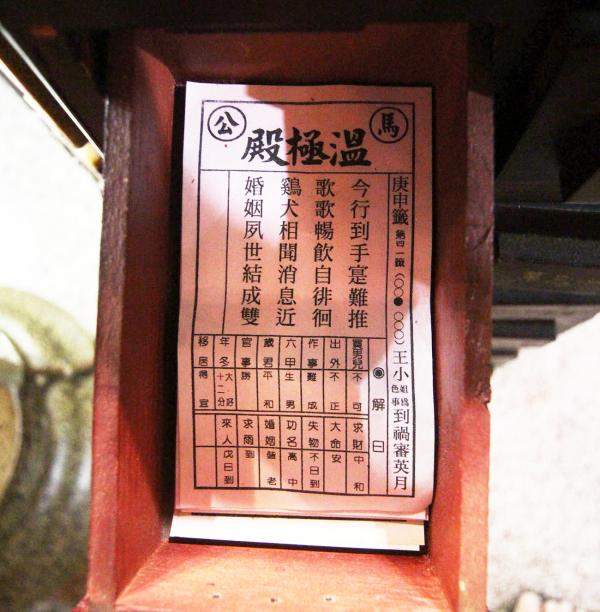 馬公
溫極殿
庚申籤 第四一籤(○○● ○○○)王小姐為色事到禍審英月
今行到手寔難推
歌歌暢飲自徘徊
鷄犬相聞消息近
婚姻夙世結成雙
解曰
寄男兒 不可
出外 不正
作事 難成
六甲 生男
歲君 平和
官事 勝
年冬 大好十二分
移居 得宜
求財 中和
大命 安
失物 不日到
功名 高中
婚姻 皆老
求雨 到
來人 戊日到